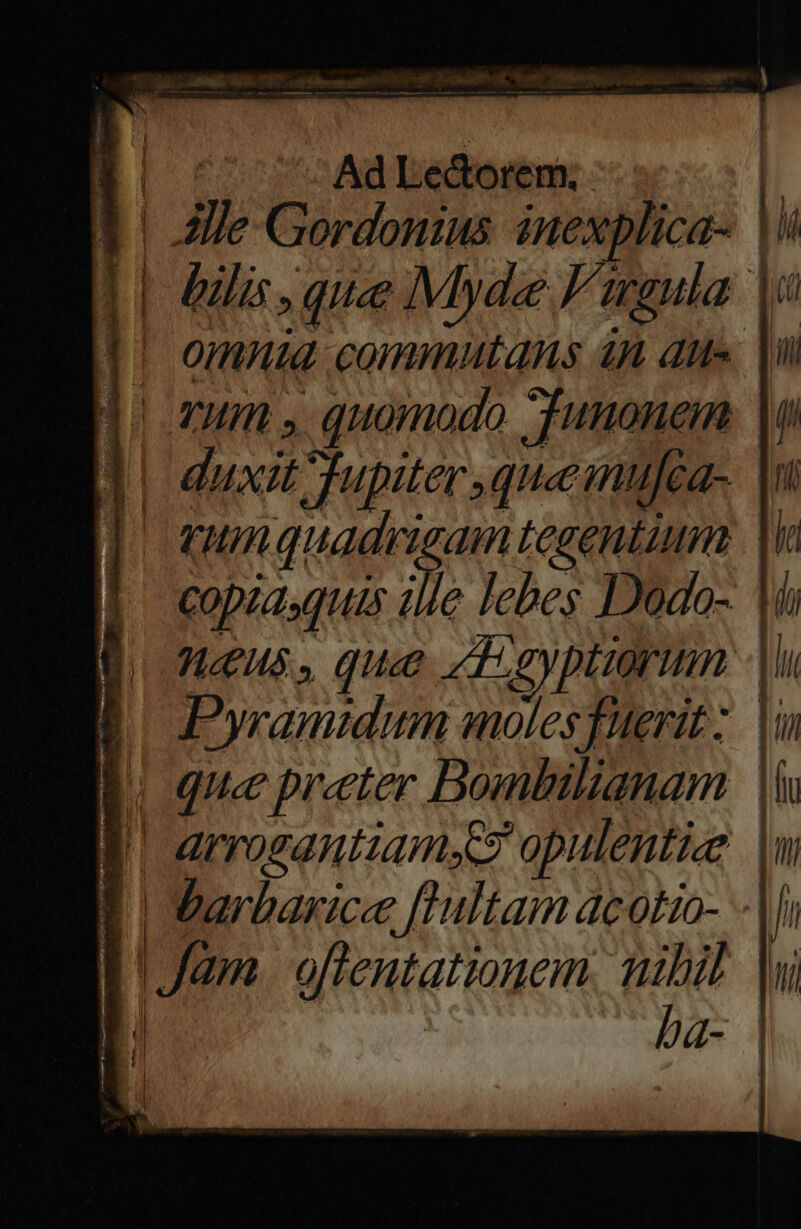 Ad Lectorem.
ille Gordonius inexplica-
bilis, quæ Mydæ Virgula
omnia commutans in au-
rum, quomodo Junonem
duxit Jupiter, quæ muſca-
rum quadrigam tegentium
copia, quis ille lebes Dodo-
næus, quæ Ægyptiorum
Pyramidum moles fuerit:
quæ præter Bombilianam
arrogantiam, & opulentiæ
barbaricæ ſtultam ac otio-
ſam oſtentationem nihil
ha-